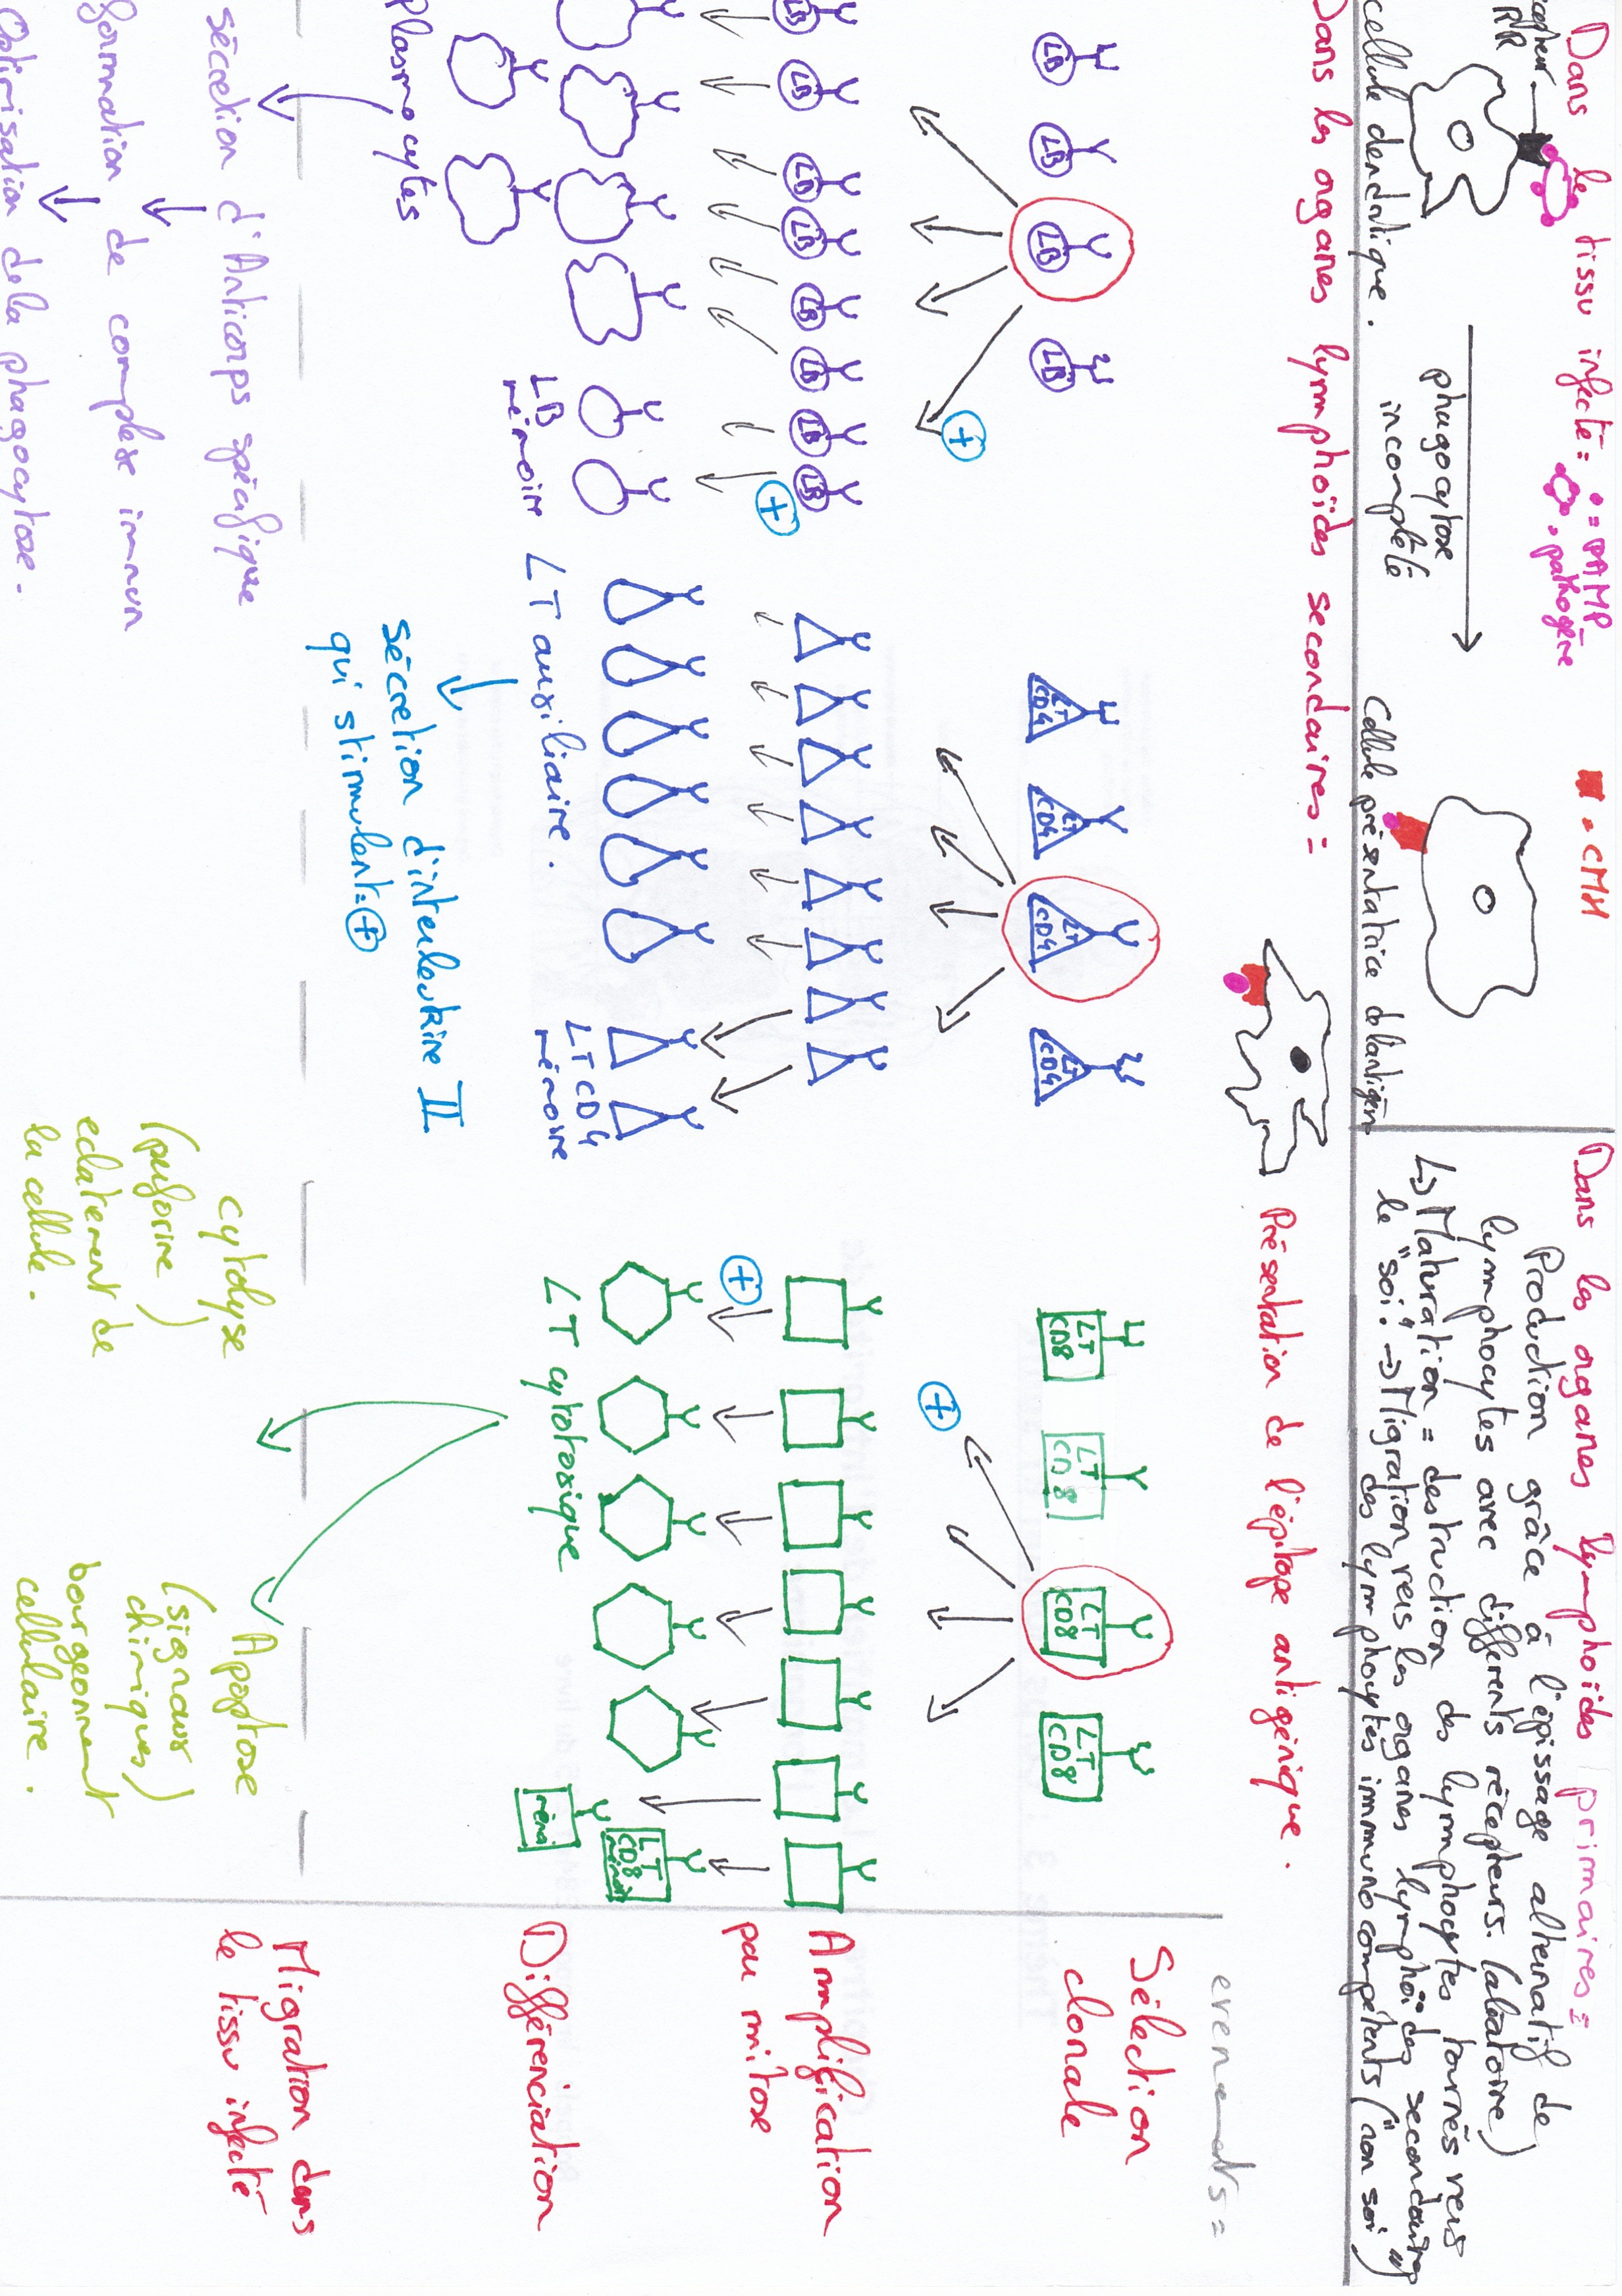 Dans le tissu infecté =
• = PAMP
= pathogène
= CMH
PRR
cellule dendritique.
phagocytose
incomplète
Cellule présentatrice de l'antigène
Dans les organes lymphoïdes primaires =
Production grâce à l'épissage alternatif de
lymphocytes avec différents récepteurs. (aléatoire)
↳ Maturation = destruction des lymphocytes tournés vers
le "soi". → Migration vers les organes lymphoïdes secondaires
des lymphocytes immunocompétents ("non soi")
Dans les organes lymphoïdes secondaires =
Présentation de l'épitope antigénique.
evenements =
LB
LB
LB
LB
LT
CD4
LT
CD4
LT
CD4
LT
CD4
LT
CD8
LT
CD8
LT
CD8
LT
CD8
Sélection
clonale
+
+
LB
LB
LB
LB
LB
LB
LB
LB
Amplification
par mitose
+
+
plasmocytes
LB
mémoire
LT auxiliaire.
LT CD4
mémoire
LT cytotoxique
LT
CD8
mémoire
mémo
Différenciation
sécretion d'interleukine II
qui stimulent = +
sécretion d'Anticorps spécifique
formation de complexe immun
Optimisation de la phagocytose.
cytolyse
(perforine)
eclatement de
la cellule.
Apoptose
(signaux
chimiques)
bourgeonnement
cellulaire.
Migration dans
le tissu infecté